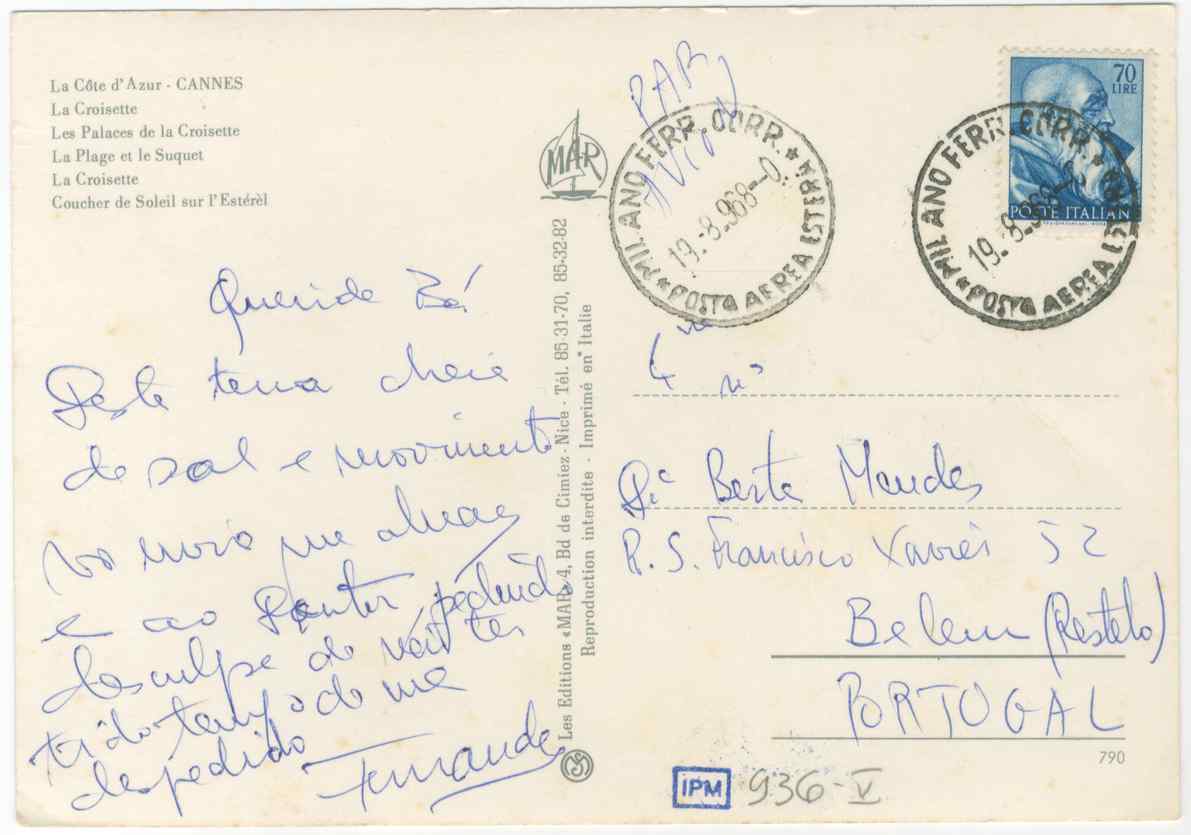 La Côte d'Azur - CANNES
La Croisette
Les Palaces de la Croisette
La Plage et le Suquet
La Croisette
Coucher de Soleil sur l'Estérèl
Querida Bé
Desta terra cheia
de sol e movimento
vai um
e ao Doutor pedindo
desculpe de não ter
tido tempo de me
despedido
Fernanda
MAR
Les Editions «MAR» 4, Bd de Cimiez - Nice - Tél. 85-31-70, 85-32-82
Reproduction interdite - Imprimé en Italie
PAR
AVION
MILANO FERR. CORR. * POSTA AEREA ESTERA *
19.-8.968--0
70
LIRE
POSTE ITALIANE
MILANO FERR. CORR. * POSTA AEREA ESTERA *
19.-8.968
Berta Mendes
R. S. Francisco Xavier 52
Belem (Restelo)
PORTUGAL
790
IPM 936-V